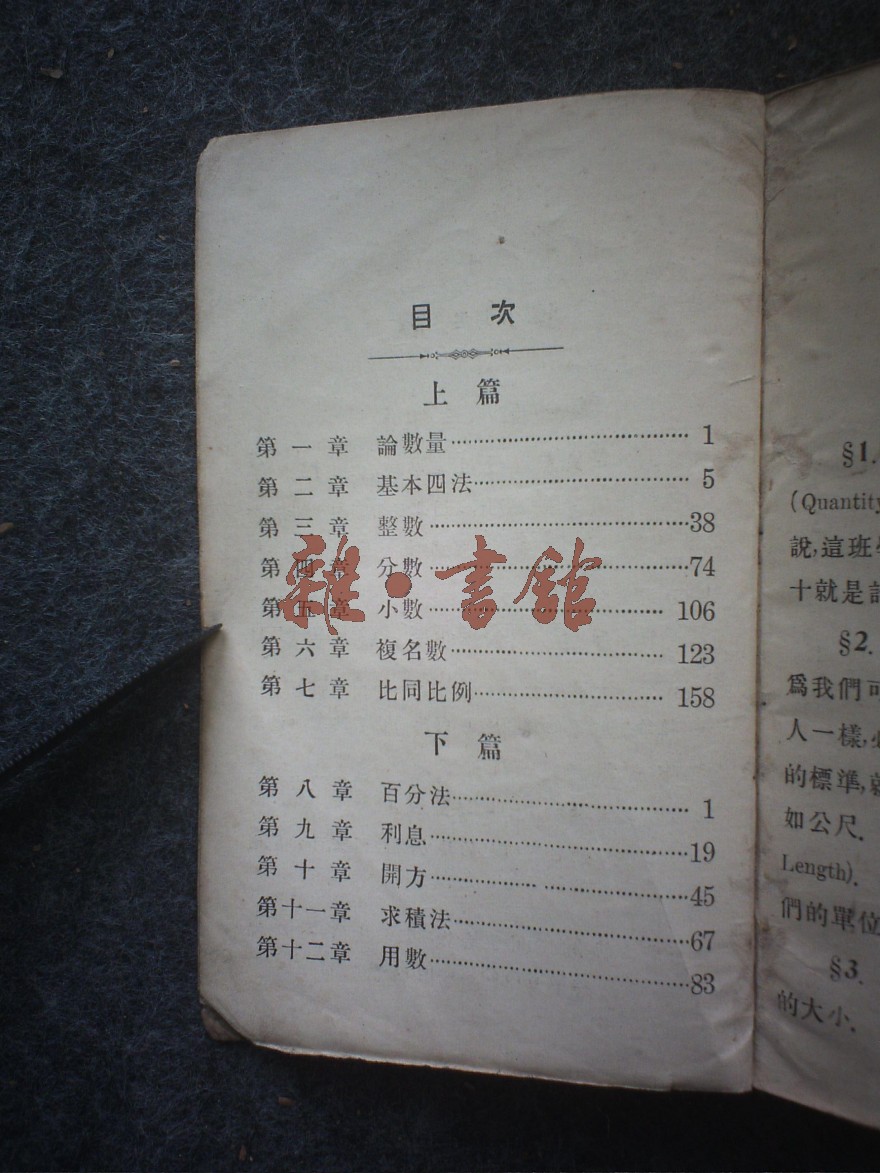 目 次
上 篇
第一章 論數量 1
第二章 基本四法 5
第三章 整數 38
第四章 分數 74
第五章 小數 106
第六章 複名數 123
第七章 比同比例 158
下 篇
第八章 百分法 1
第九章 利息 19
第十章 開方 45
第十一章 求積法 67
第十二章 用數 83
雜·書館
§1.
(Quantity
說,這班
十就是
§2.
爲我們可
人一樣,
的標準,
如公尺.
Length).
們的單位
§3.
的大小.